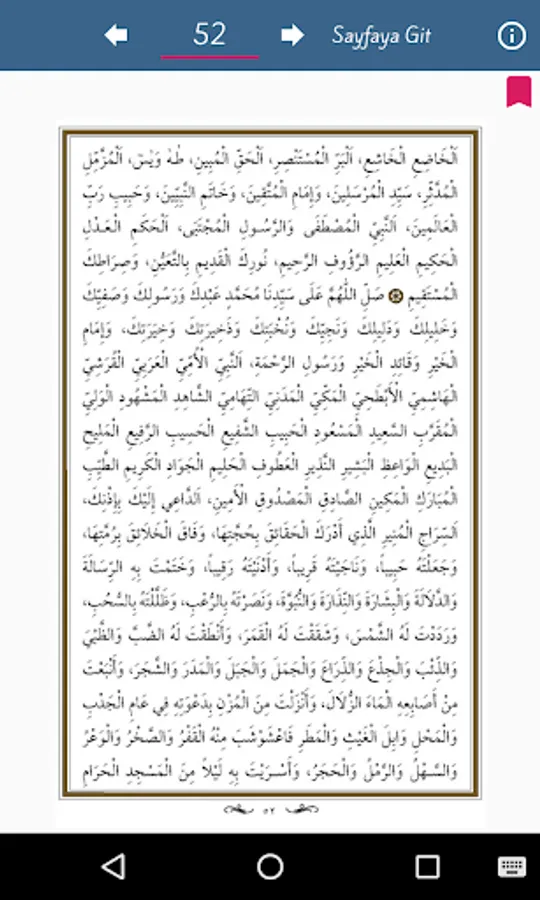 52 Sayfaya Git
اَلْخَاضِعِ الْخَاشِعِ، اَلْبَرِّ الْمُسْتَنْصِرِ، اَلْحَقِّ الْمُبِينِ، طٰهٰ وَيٰسٓ، اَلْمُزَّمِّلِ
الْمُدَّثِّرِ، سَيِّدِ الْمُرْسَلِينَ، وَإِمَامِ الْمُتَّقِينَ، وَخَاتَمِ النَّبِيِّينَ، وَحَبِيبِ رَبِّ
الْعَالَمِينَ، اَلنَّبِيِّ الْمُصْطَفَى وَالرَّسُولِ الْمُجْتَبَى، اَلْحَكَمِ الْعَدْلِ
الْحَكِيمِ الْعَلِيمِ الرَّؤُوفِ الرَّحِيمِ، نُورِكَ الْقَدِيمِ بِالتَّعَيُّنِ، وَصِرَاطِكَ
الْمُسْتَقِيمِ ۞ صَلِّ اللّٰهُمَّ عَلَى سَيِّدِنَا مُحَمَّدٍ عَبْدِكَ وَرَسُولِكَ وَصَفِيِّكَ
وَخَلِيلِكَ وَدَلِيلِكَ وَنَجِيِّكَ وَنُخْبَتِكَ وَذَخِيرَتِكَ وَخِيَرَتِكَ، وَإِمَامِ
الْخَيْرِ وَقَائِدِ الْخَيْرِ وَرَسُولِ الرَّحْمَةِ، اَلنَّبِيِّ الْأُمِّيِّ الْعَرَبِيِّ الْقُرَشِيِّ
الْهَاشِمِيِّ الْأَبْطَحِيِّ الْمَكِّيِّ الْمَدَنِيِّ التِّهَامِيِّ الشَّاهِدِ الْمَشْهُودِ الْوَلِيِّ
الْمُقَرَّبِ السَّعِيدِ الْمَسْعُودِ الْحَبِيبِ الشَّفِيعِ الْحَسِيبِ الرَّفِيعِ الْمَلِيحِ
الْبَدِيعِ الْوَاعِظِ الْبَشِيرِ النَّذِيرِ الْعَطُوفِ الْحَلِيمِ الْجَوَادِ الْكَرِيمِ الطَّيِّبِ
الْمُبَارَكِ الْمَكِينِ الصَّادِقِ الْمَصْدُوقِ الْأَمِينِ، اَلدَّاعِي إِلَيْكَ بِإِذْنِكَ،
اَلسِّرَاجِ الْمُنِيرِ الَّذِي أَدْرَكَ الْحَقَائِقَ بِحُجَّتِهَا، وَفَاقَ الْخَلَائِقَ بِرُمَّتِهَا،
وَجَعَلْتَهُ حَبِيباً، وَنَاجَيْتَهُ قَرِيباً، وَأَدْنَيْتَهُ رَقِيباً، وَخَتَمْتَ بِهِ الرِّسَالَةَ
وَالدَّلَالَةَ وَالْبِشَارَةَ وَالنِّذَارَةَ وَالنُّبُوَّةَ، وَنَصَرْتَهُ بِالرُّعْبِ، وَظَلَّلْتَهُ بِالسُّحُبِ،
وَرَدَدْتَ لَهُ الشَّمْسَ، وَشَقَقْتَ لَهُ الْقَمَرَ، وَأَنْطَقْتَ لَهُ الضَّبَّ وَالظَّبْيَ
وَالذِّئْبَ وَالْجِذْعَ وَالذِّرَاعَ وَالْجَمَلَ وَالْجَبَلَ وَالْمَدَرَ وَالشَّجَرَ، وَأَنْبَعْتَ
مِنْ أَصَابِعِهِ الْمَاءَ الزُّلَالَ، وَأَنْزَلْتَ مِنَ الْمُزْنِ بِدَعْوَتِهِ فِي عَامِ الْجَدْبِ
وَالْمَحْلِ وَابِلَ الْغَيْثِ وَالْمَطَرِ فَاعْشَوْشَبَ مِنْهُ الْقَفْرُ وَالصَّخْرُ وَالْوَعْرُ
وَالسَّهْلُ وَالرَّمْلُ وَالْحَجَرُ، وَأَسْرَيْتَ بِهِ لَيْلاً مِنَ الْمَسْجِدِ الْحَرَامِ
٥٢